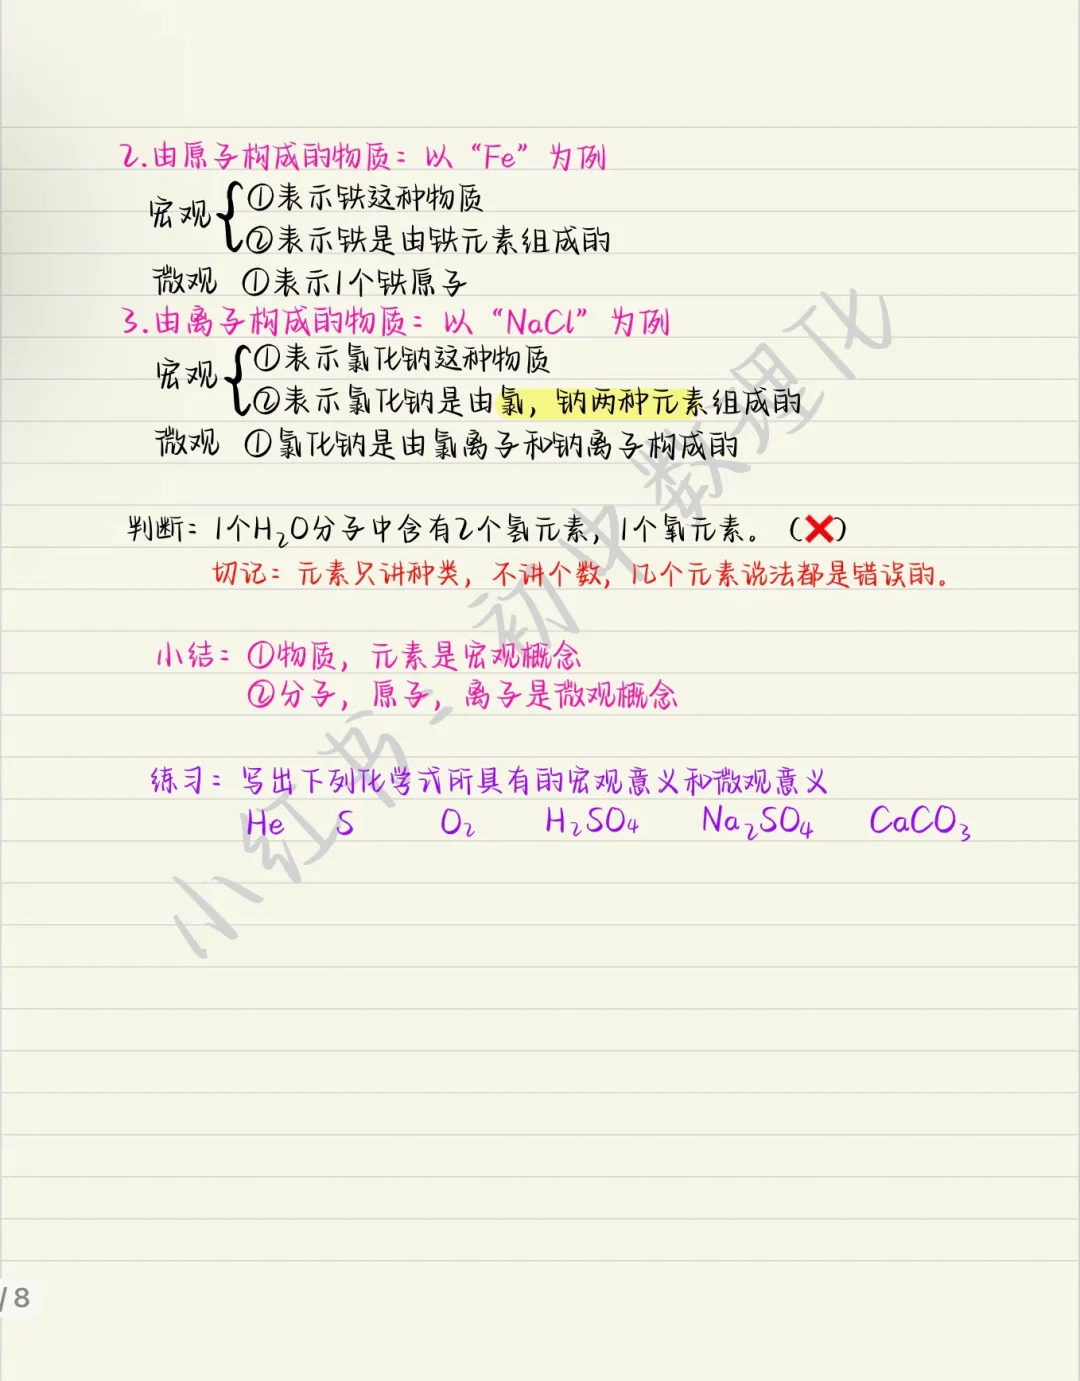 2.由原子构成的物质：以“Fe”为例
宏观 ①表示铁这种物质
②表示铁是由铁元素组成的
微观 ①表示1个铁原子
3.由离子构成的物质：以“NaCl”为例
宏观 ①表示氯化钠这种物质
②表示氯化钠是由氯，钠两种元素组成的
微观 ①氯化钠是由氯离子和钠离子构成的
判断：1个H₂O分子中含有2个氢元素，1个氧元素。（❌）
切记：元素只讲种类，不讲个数，几个元素说法都是错误的。
小结：①物质，元素是宏观概念
②分子，原子，离子是微观概念
练习：写出下列化学式所具有的宏观意义和微观意义
He S O₂ H₂SO₄ Na₂SO₄ CaCO₃
小红书、初中数理化
/8